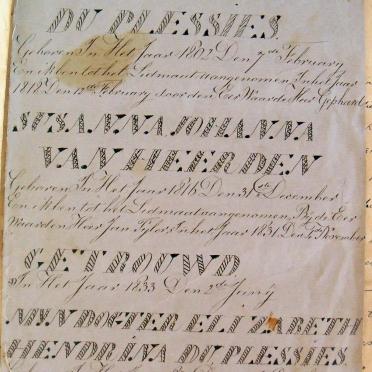 DU PLESSIES
Geboren In Het Jaar 1802 Den 7de February
En ik ben tot het Ledmaat aangenomen In het Jaar
1819 Den 12te February door den Eer Waarde Heer
SUSANNA JOHANNA
VAN HEERDEN
Geboren In Het Jaar 1816 Den 31ste December
En ik ben tot het Ledmaat aangenomen By de Eer
Waarden Heer Jan Tyler In het Jaar 1831 Den November
GETROUWD
In Het Jaar 1833 Den 2de Juny
MYN DOGTER ELIZABETH
HENDRINA DU PLESSIES